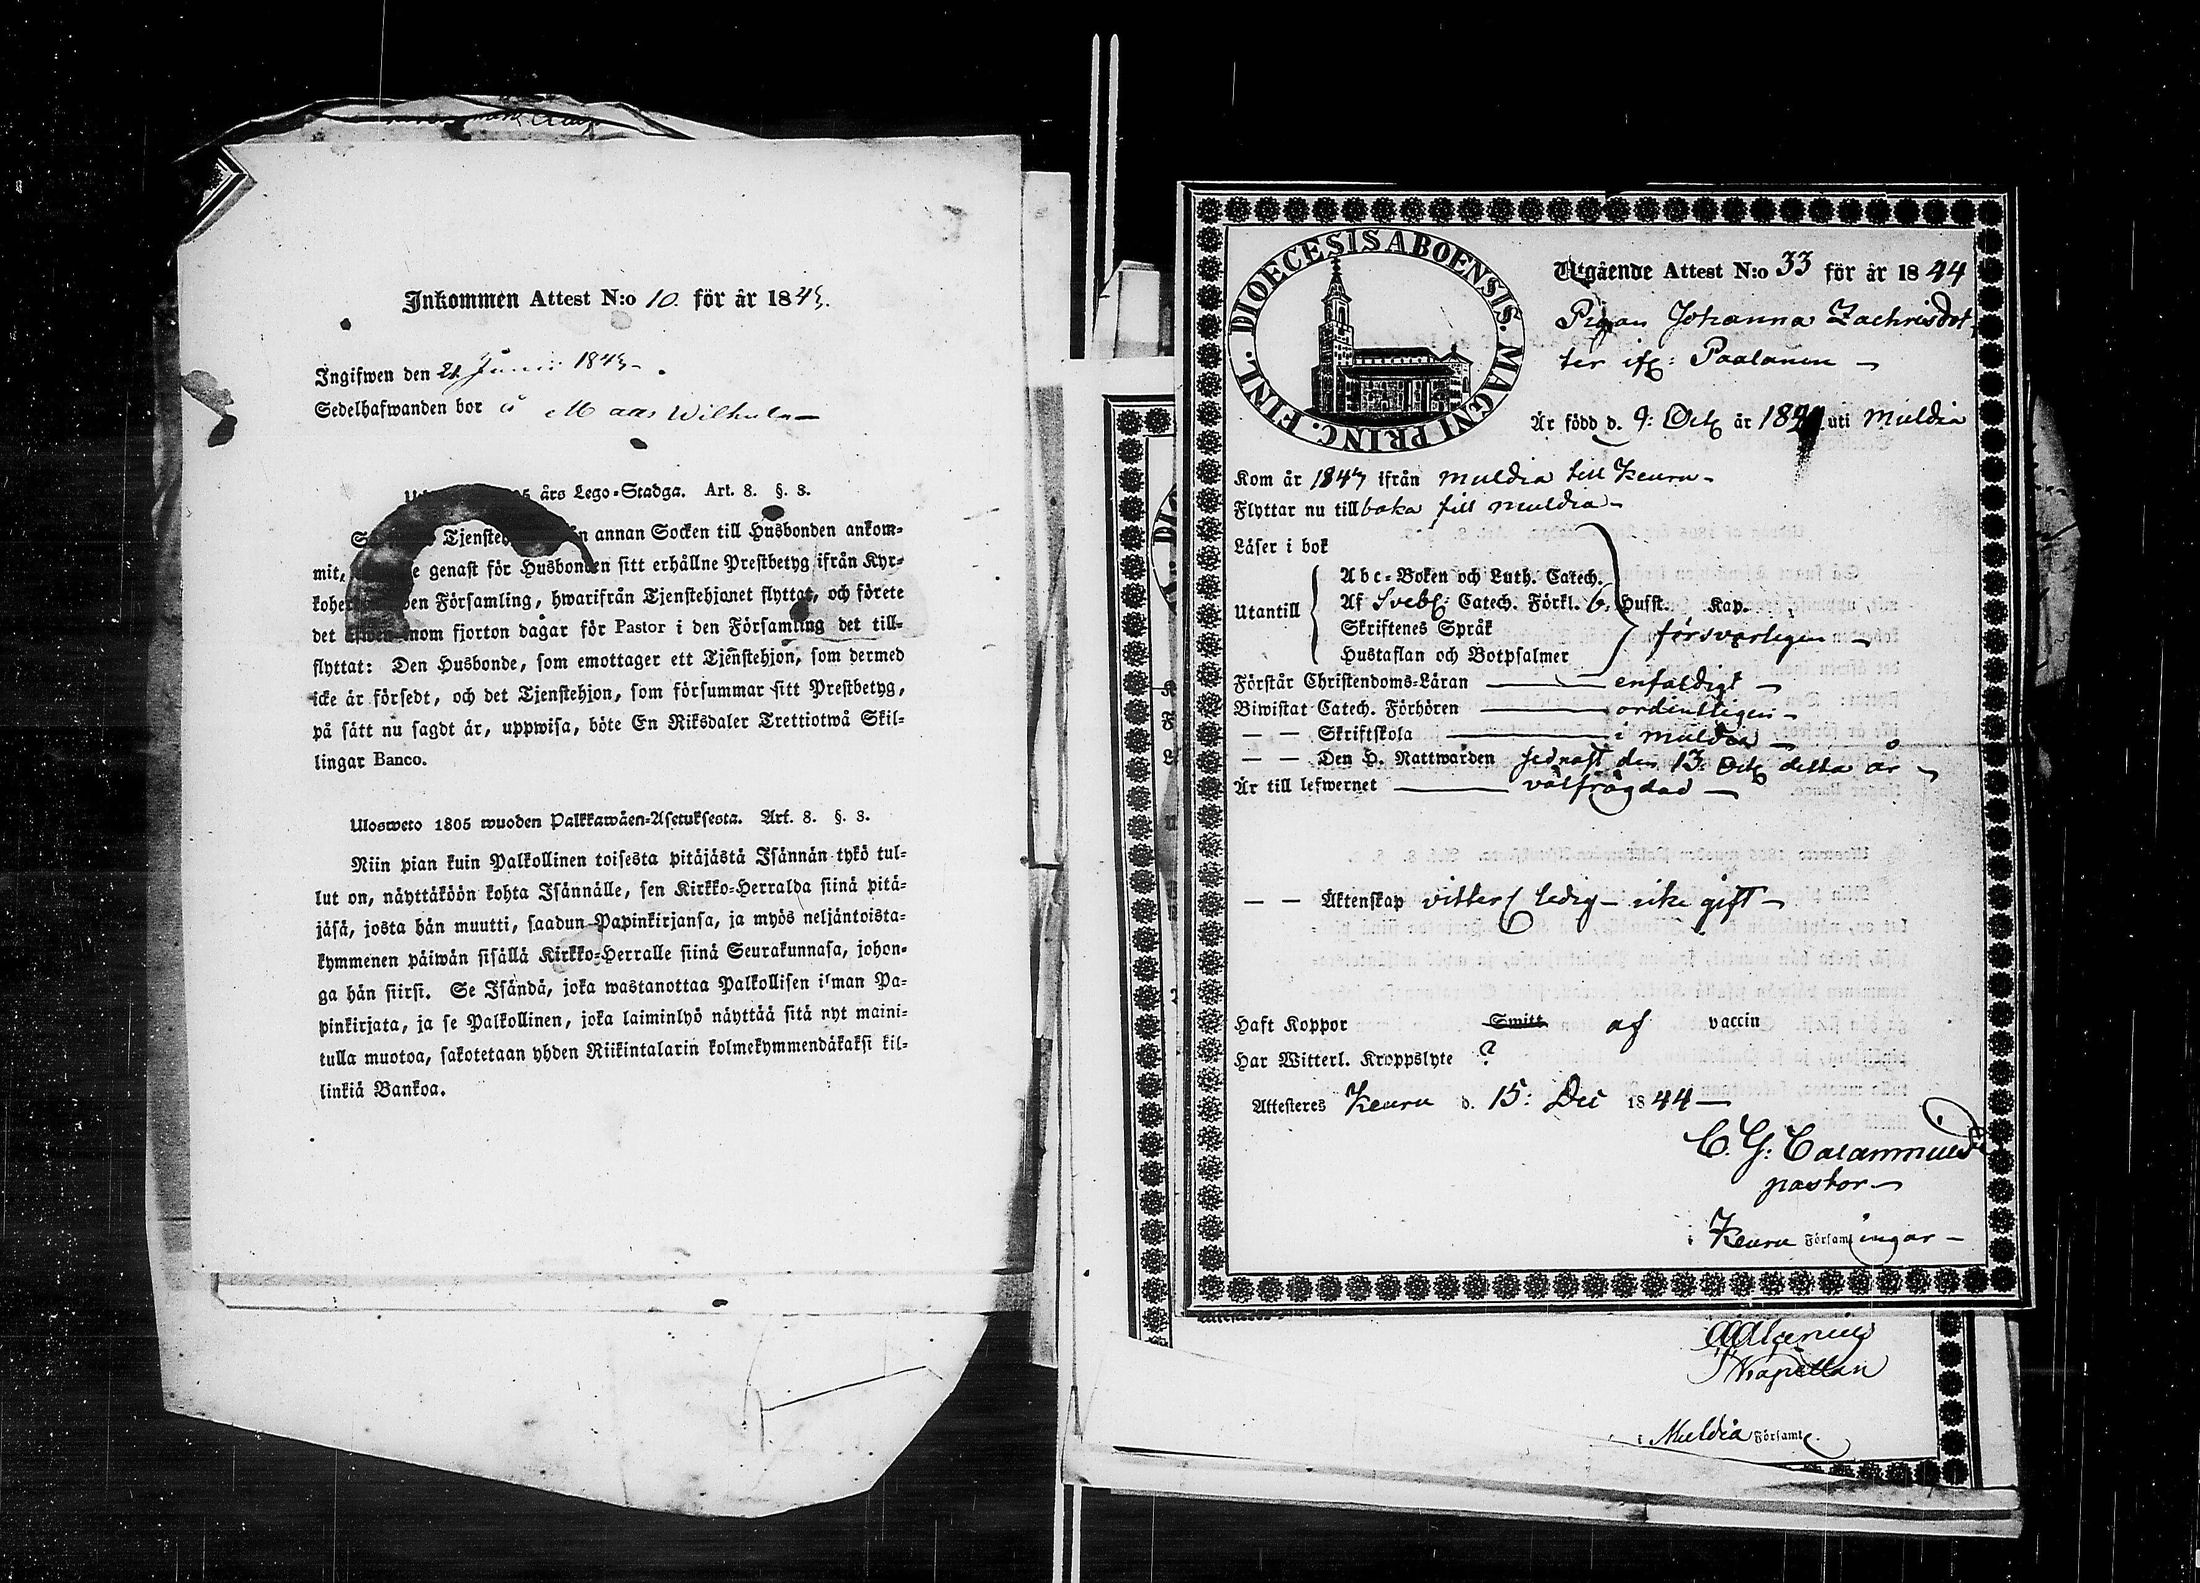 Inkommen Attest N:o 10. för år 184
Ingifwen den 21 Junii 184
Sedelhafwanden bor å Wilhula
års Lego-Stadga. Art. 8. §. 3.
annan Socken till Husbonden ankom-
mit, genast för Husbonden sitt erhållne Prestbetyg ifrån Kyr-
Församling, hwarifrån Tjenstehjonet flyttat, och förete
det inom fjorton dagar för Pastor i den Församling det till-
flyttat: Den Husbonde, som emottager ett Tjenstehjon, som dermed
icke är försedt, och det Tjenstehjon, som försummar sitt Prestbetyg,
på sätt nu sagdt är, uppwisa, böte En Riksdaler Trettiotwå Skil-
lingar Banco.
Ulosweto 1805 wuoden Palkkawäen-Asetuksesta. Art. 8. §. 3.
Niin pian kuin Palkollinen toisesta pitäjästä Isännän tykö tul-
lut on, näyttäköön kohta Isännälle, sen Kirkko-Herralda siinä pitä-
jäsä, josta hän muutti, saadun Papinkirjansa, ja myös neljäntoista-
kymmenen päiwän sisällä Kirkko-Herralle siinä Seurakunnasa, johon-
ga hän siirsi. Se Isändä, joka wastanottaa Palkollisen ilman Pa-
pinkirjata, ja se Palkollinen, joka laiminlyö näyttää sitä nyt maini-
tulla muotoa, sakotetaan yhden Riikintalarin kolmekymmendäkaksi kil-
linkiä Bankoa.
DIOECESIS ABOENSIS. MAGNI PRINC. FINL.
Utgående Attest N:o 33 för år 1844
Pigan Johanna Zachrisdot-
ter ifr: Paalanen
Är född d. 9: Oct år 18 uti Muldia
Kom år 184 ifrån Muldia till Keuru
Flyttar nu till baka till Muldia
Läser i bok
Utantill
Abc-Boken och Luth. Catech.
Af Svebel: Catech. Förkl. 6. Husst. Kap.
Skriftenes Språk
Hustaflan och Botpsalmer
försvarligen
Förstår Christendoms-Läran enfaldigt
Biwistat Catech. Förhören ordentligen
— — Skriftskola i Muldia
— — Den H. Nattwarden sednast den 13. Oct detta år
Är till lefwernet välfrägdad
— — Äktenskap vitterl. ledig icke gift
Haft Koppor Smitt. af vaccin
Har Witterl. Kroppslyte ?
Attesteres Keuru d. 15: Dec 1844
C. G: Calamnius
pastor
i Keuru Församlingar
Kapellan
i Muldia Församl.